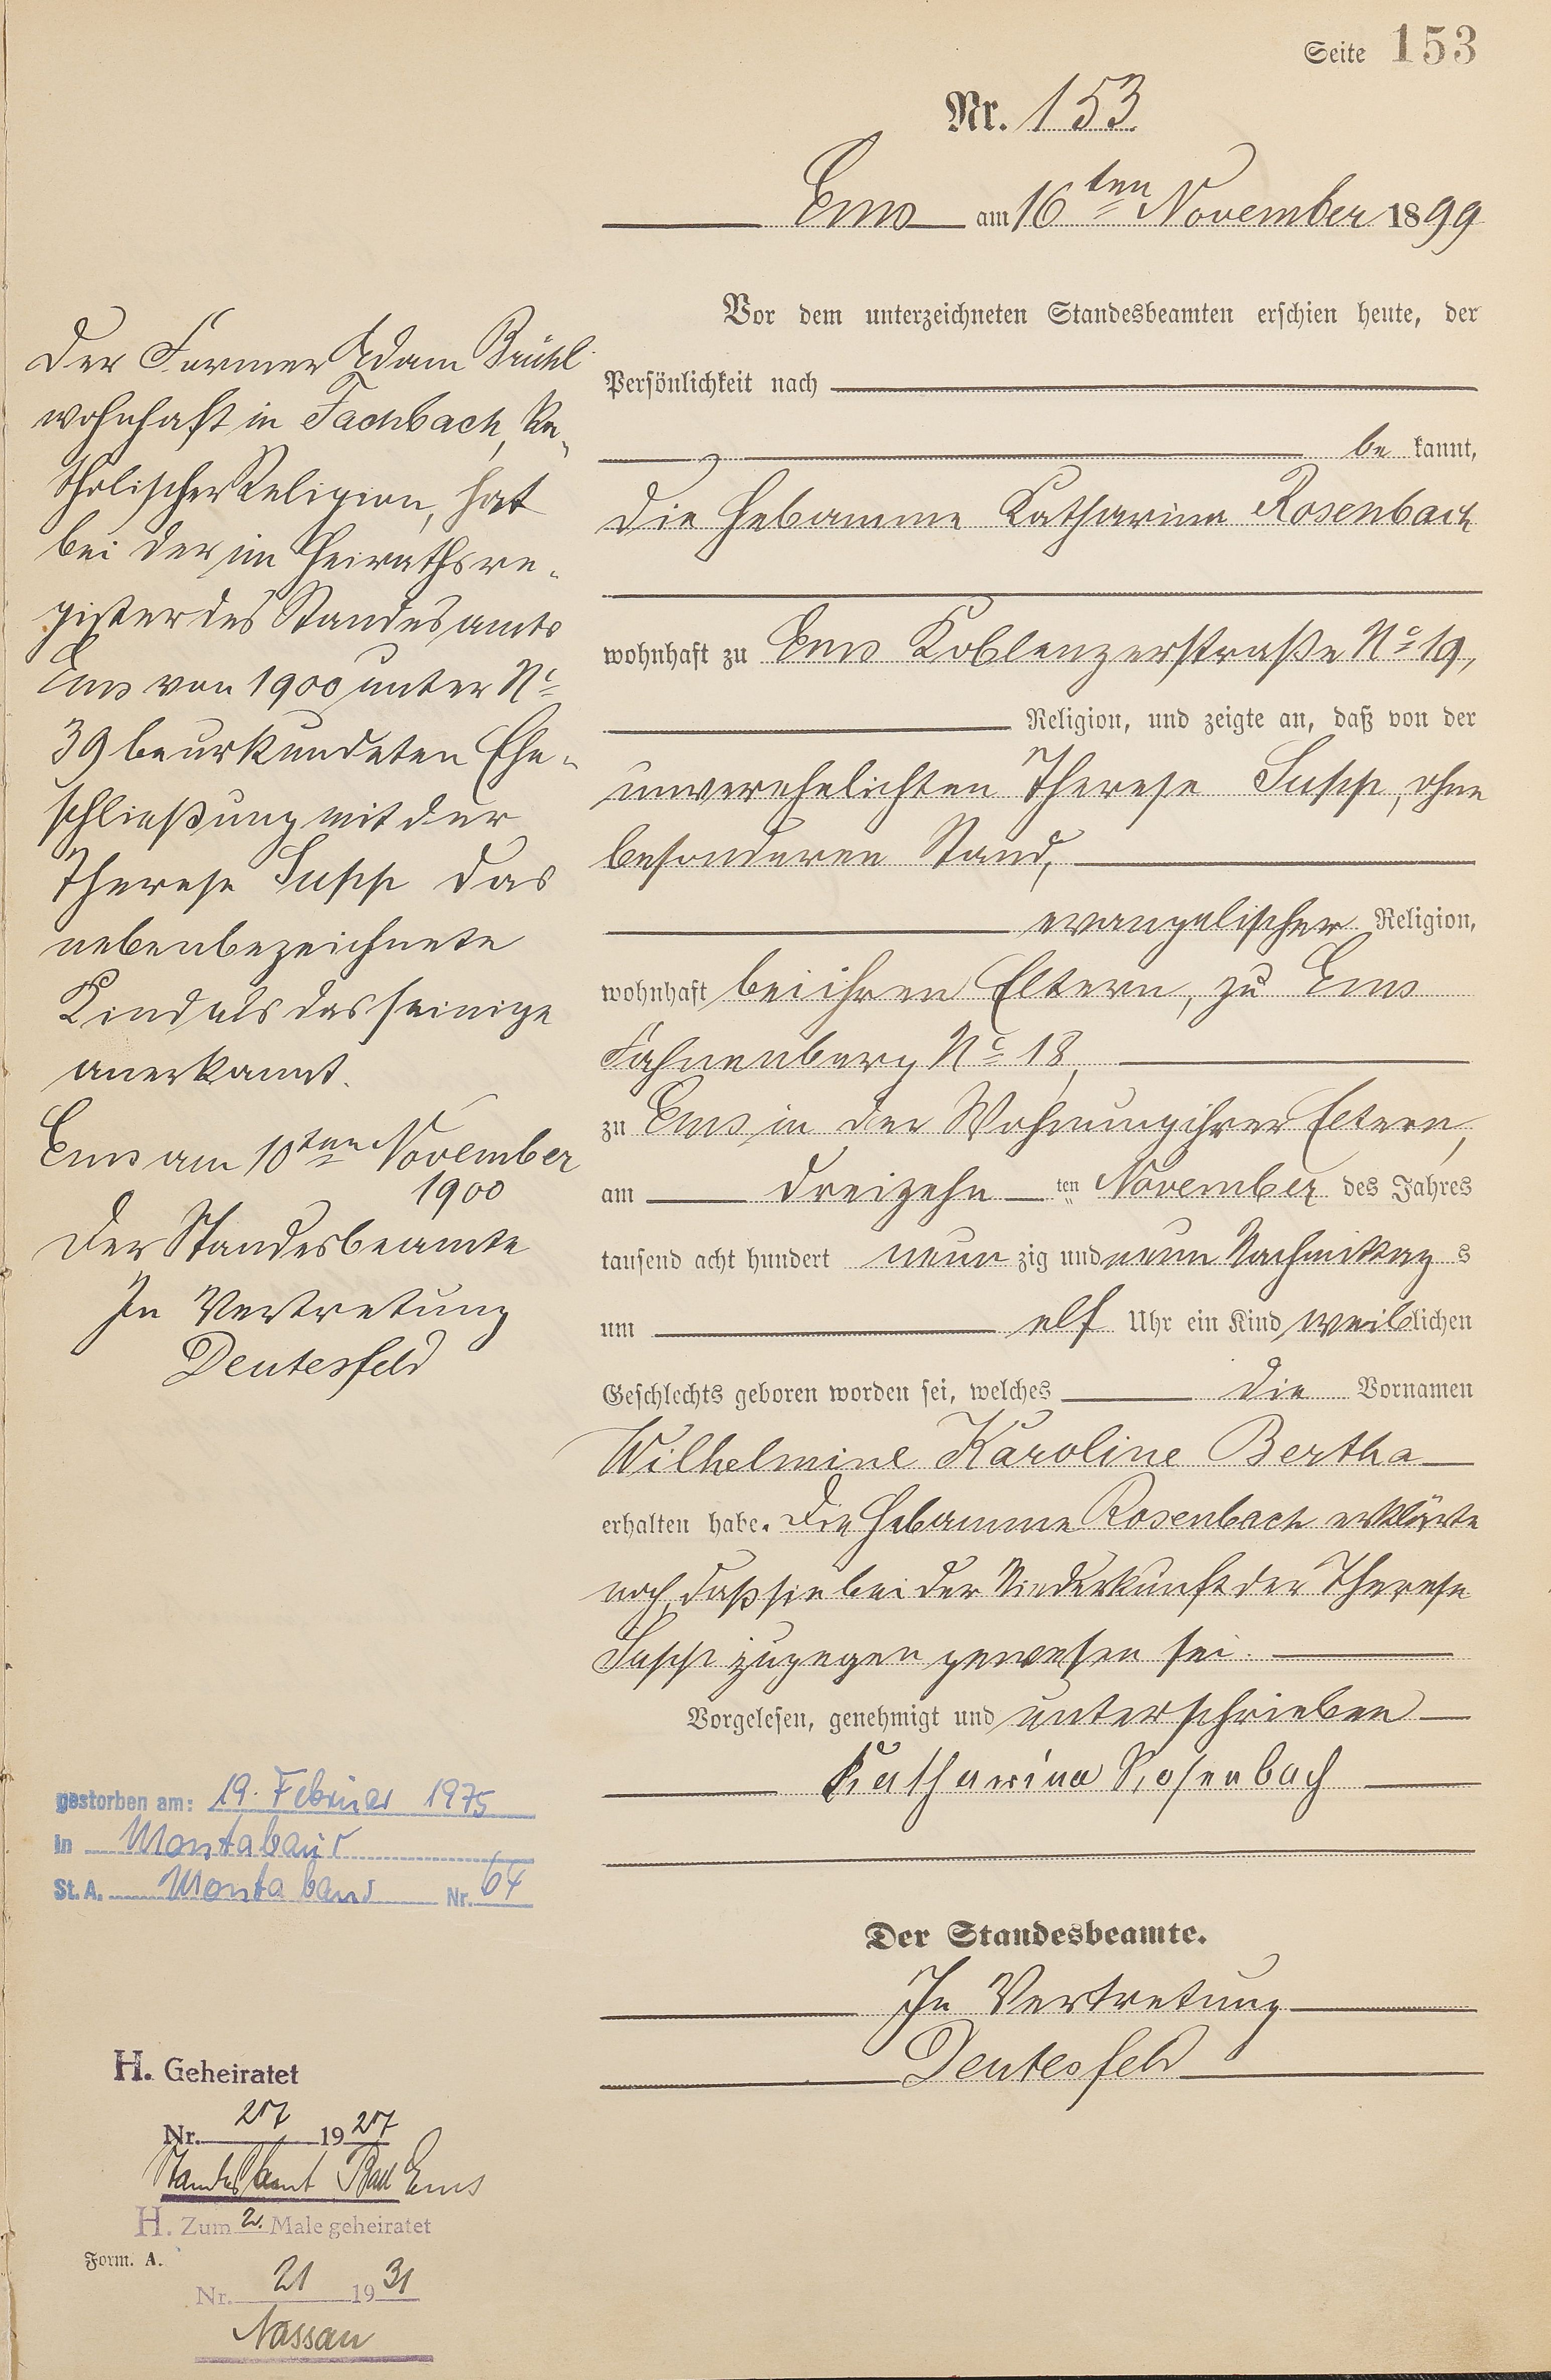 Seite 153
Nr. 153
Ems am 16ten November 1899
Vor dem unterzeichneten Standesbeamten erschien heute, der
Persönlichkeit nach
be kannt,
die Hebamme Katharina Rosenbach
wohnhaft zu Ems Koblenzerstraße No 19,
Religion, und zeigte an, daß von der
unverehelichten Therese Supp, ohne
besonderen Stand,
evangelischer Religion,
wohnhaft bei ihren Eltern, zu Ems
Fahnenberg No 18,
zu Ems in der Wohnung ihrer Eltern,
am dreizehn ten November des Jahres
tausend acht hundert neun zig und neun Nachmittag s
um elf Uhr ein Kind weiblichen
Geschlechts geboren worden sei, welches die Vornamen
Wilhelmine Karoline Bertha
erhalten habe. Die Hebamme Rosenbach erklärte
noch, daß sie bei der Niederkunft der Therese
Supp zugegen gewesen sei.
Vorgelesen, genehmigt und unterschrieben
Katharina Rosenbach
Der Standesbeamte.
In Vertretung
Deutesfeld
Der Former Adam Brühl
wohnhaft in Fachbach, Ka-
tholischer Religion, hat
bei der im Heirathsre-
gister des Standesamts
Ems von 1900 unter No
39 beurkundeten Ehe-
schließung mit der
Therese Supp das
nebenbezeichnete
Kind als das seinige
anerkannt.
Ems am 10ten November
1900
Der Standesbeamte
In Vertretung
Deutesfeld
gestorben am: 19. Februar 1975
in Montabaur
St. A. Montabaur Nr. 64
H. Geheiratet
Nr. 27 1927
Standesamt Bad Ems
H. Zum 2. Male geheiratet
Form. A.
Nr. 21 1931
Nassau